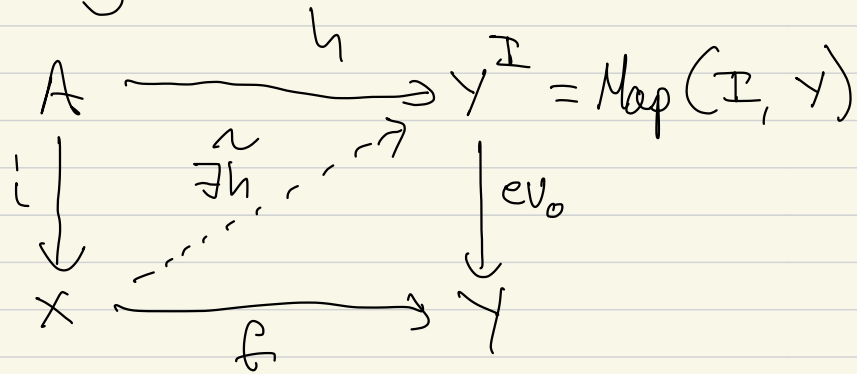 h
A Y^I = Map(I, Y)
i ∃h̃ ev₀
X Y
f